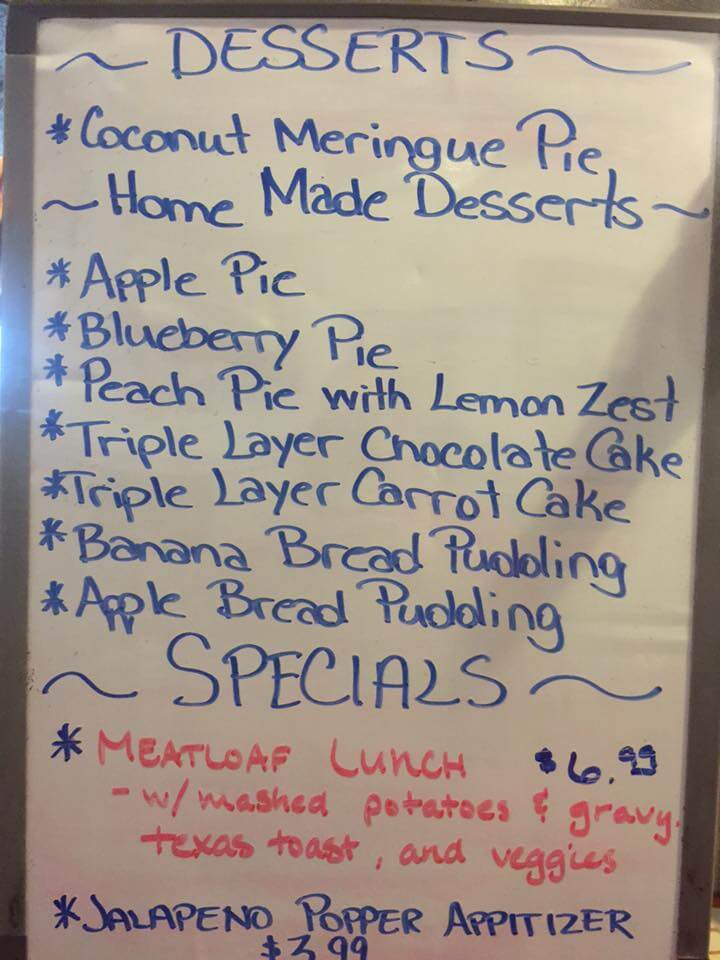 ~ DESSERTS ~
* Coconut Meringue Pie
~ Home Made Desserts ~
* Apple Pie
* Blueberry Pie
* Peach Pie with Lemon Zest
* Triple Layer Chocolate Cake
* Triple Layer Carrot Cake
* Banana Bread Pudding
* Apple Bread Pudding
~ SPECIALS ~
* MEATLOAF LUNCH $6.99
- w/ mashed potatoes & gravy.
texas toast, and veggies
* JALAPENO POPPER APPITIZER
$3.99